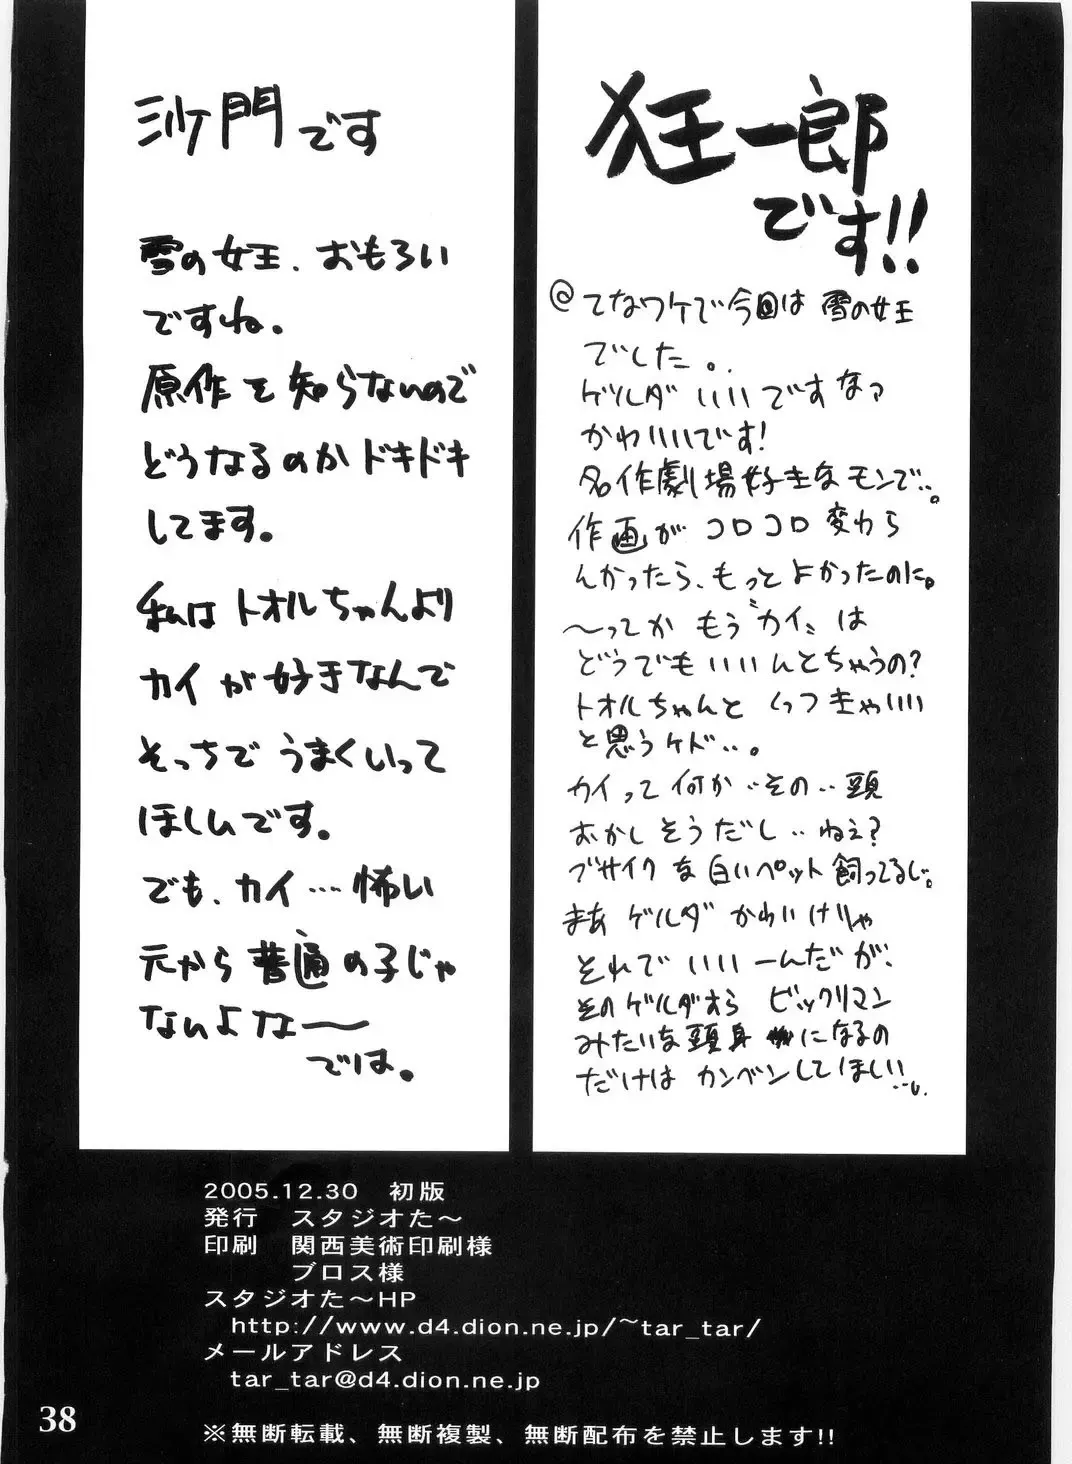 狂一郎
です!!
@てなワケで今回は雪の女王
でした。
ゲルダいいですなァ
かわいいです!
名作劇場好きなモンで‥。
作画がコロコロ変わら
んかったら、もっとよかったのに。
〜ってかもう〝カイ〟は
どうでもいいんとちゃうの?
トオルちゃんとくっつきゃいい
と思うケド‥。
カイって何か‥その‥頭
おかしそうだし‥ねぇ?
ブサイクな白いペット飼ってるし。
まあゲルダかわいけりゃ
それでいいーんだが、
そのゲルダすらビックリマン
みたいな頭身になるの
だけはカンベンしてほしい‥。
沙門です
雪の女王、おもろい
ですね。
原作を知らないので
どうなるのかドキドキ
してます。
私はトオルちゃんより
カイが好きなんで
そっちでうまくいって
ほしいです。
でも、カイ…怖い
元から普通の子じゃ
ないよな〜
では。
2005.12.30 初版
発行 スタジオた〜
印刷 関西美術印刷様
ブロス様
スタジオた〜HP
http://www.d4.dion.ne.jp/~tar_tar/
メールアドレス
tar_tar@d4.dion.ne.jp
※無断転載、無断複製、無断配布を禁止します!!
38